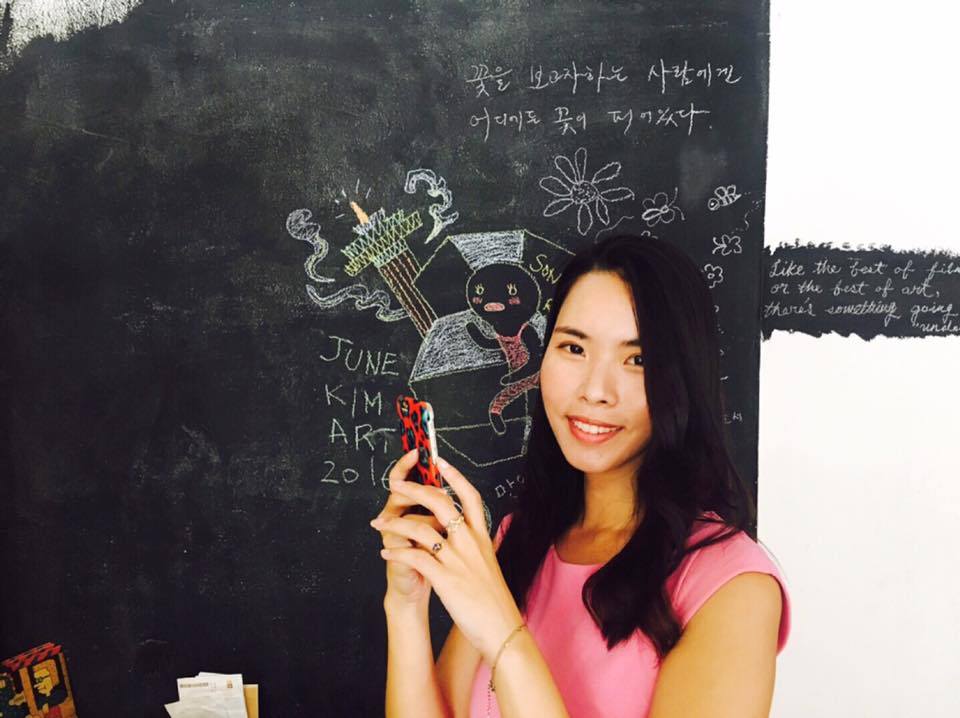 꽃을 보고자하는 사람에겐
어디에든 꽃이 피어있다.
JUNE
KIM
ART
2016
Like the best of film
or the best of art,
there's something going